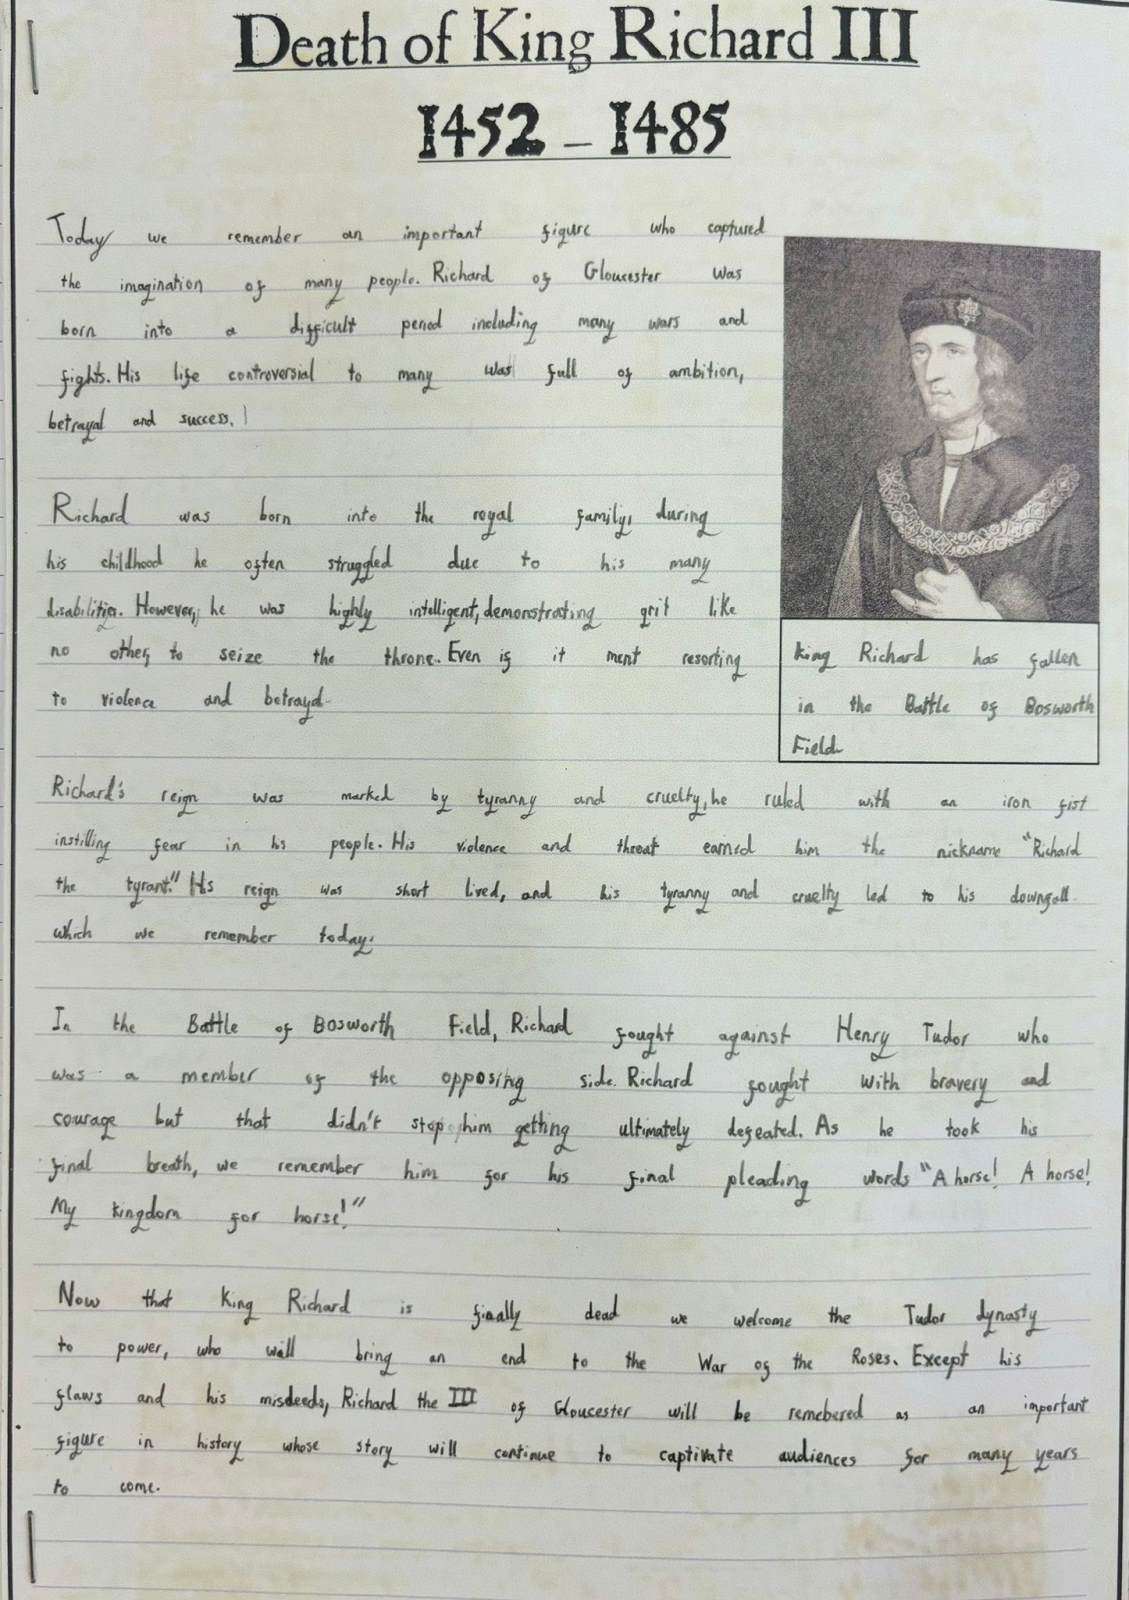 Death of King Richard III
1452 - 1485
Today we remember an important figure who captured
the imagination of many people. Richard of Gloucester was
born into a difficult period including many wars and
fights. His life controversial to many was full of ambition,
betrayal and success.
Richard was born into the royal family, during
his childhood he often struggled due to his many
disabilities. However, he was highly intelligent, demonstrating grit like
no other, to seize the throne. Even if it ment resorting
to violence and betrayal.
King Richard has fallen
in the Battle of Bosworth
Field.
Richard's reign was marked by tyranny and cruelty, he ruled with an iron fist
instilling fear in his people. His violence and threat earned him the nickname "Richard
the tyrant." His reign was short lived, and his tyranny and cruelty led to his downfall
which we remember today.
In the Battle of Bosworth Field, Richard fought against Henry Tudor who
was a member of the opposing side. Richard fought with bravery and
courage but that didn't stop him getting ultimately defeated. As he took his
final breath, we remember him for his final pleading words "A horse! A horse!
My kingdom for horse!"
Now that King Richard is finally dead we welcome the Tudor dynasty
to power, who will bring an end to the War of the Roses. Except his
flaws and his misdeeds, Richard the III of Gloucester will be remebered as an important
figure in history whose story will continue to captivate audiences for many years
to come.